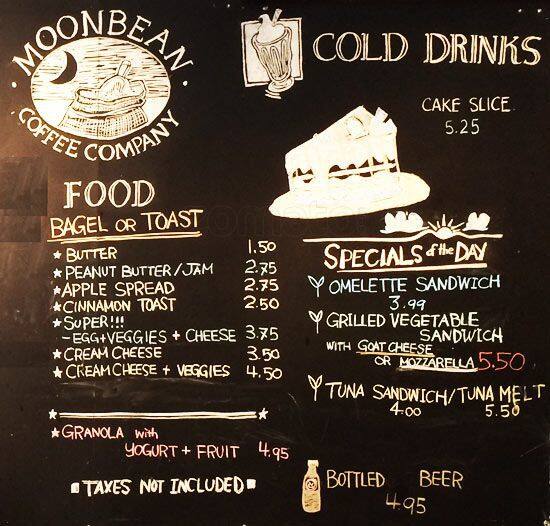 MOONBEAN
COFFEE COMPANY
COLD DRINKS
CAKE SLICE
5.25
FOOD
BAGEL OR TOAST
BUTTER 1.50
PEANUT BUTTER/JAM 2.75
APPLE SPREAD 2.75
CINNAMON TOAST 2.50
SUPER!!!
-EGG+VEGGIES + CHEESE 3.75
CREAM CHEESE 3.50
CREAM CHEESE + VEGGIES 4.50
GRANOLA with
YOGURT + FRUIT 4.95
TAXES NOT INCLUDED
SPECIALS of the DAY
OMELETTE SANDWICH
3.99
GRILLED VEGETABLE
SANDWICH
WITH GOAT CHEESE
OR MOZZARELLA 5.50
TUNA SANDWICH/TUNA MELT
4.00 5.50
BOTTLED BEER
4.95